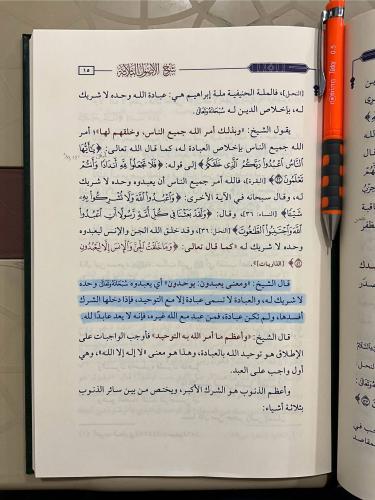 شرح الأصول الثلاثة
١٥
[النحل]، فالملة الحنيفية ملة إبراهيم هي: عبادة الله وحده لا شريك
له، بإخلاص الدين لـه سُبْحَانَهُ وَتَعَالَى.
يقول الشيخ: «وبذلك أمر الله جميع الناس، وخلقهم لها»؛ أمر
الله جميع الناس بإخلاص العبادة له، كما قال الله تعالى: ﴿يَٰٓأَيُّهَا
ٱلنَّاسُ ٱعْبُدُوا۟ رَبَّكُمُ ٱلَّذِى خَلَقَكُمْ﴾ إلى قوله: ﴿فَلَا تَجْعَلُوا۟ لِلَّهِ أَندَادًا وَأَنتُمْ
تَعْلَمُونَ ﴾ [البقرة]، فالله أمر جميع الناس أن يعبدوه وحده لا شريك
له، وقال سبحانه في الآية الأخرى: ﴿وَٱعْبُدُوا۟ ٱللَّهَ وَلَا تُشْرِكُوا۟ بِهِۦ
شَيْـًٔا﴾ [النساء: ٣٦]، وقال: ﴿وَلَقَدْ بَعَثْنَا فِى كُلِّ أُمَّةٍ رَّسُولًا أَنِ ٱعْبُدُوا۟
ٱللَّهَ وَٱجْتَنِبُوا۟ ٱلطَّٰغُوتَ﴾ [النحل: ٣٦]، وقد خلق الله الجن والإنس ليعبدوه
وحده لا شريك له «كما قال تعالى: ﴿وَمَا خَلَقْتُ ٱلْجِنَّ وَٱلْإِنسَ إِلَّا لِيَعْبُدُونِ
﴾ [الذاريات]».
قال الشيخ: «ومعنى يعبدون: يوحدون» أي يعبدوه سُبْحَانَهُ وَتَعَالَى وحده
لا شريك له، والعبادة لا تسمى عبادة إلا مع التوحيد، فإذا دخلها الشرك
أفسدها، ولم تكن عبادة، فمن عبد مع الله غيره، فإنه لا يعد عابدًا لله.
قال الشيخ: «وأعظم ما أمر الله به التوحيد» فأوجب الواجبات على
الإطلاق هو توحيد الله بالعبادة، وهذا هو معنى «لا إله إلا الله»، وهي
أول واجب على العبد.
وأعظم الذنوب هو الشرك الأكبر، ويختص من بين سائر الذنوب
بثلاثة أشياء: